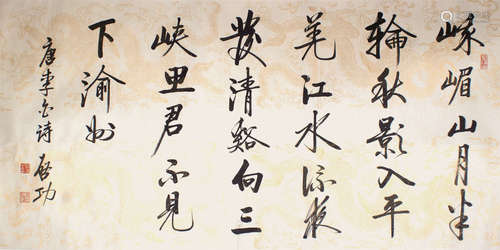 峨嵋山月半
輪秋影入平
羌江水流夜
發清谿向三
峡思君不見
下渝州
唐李白詩 启功